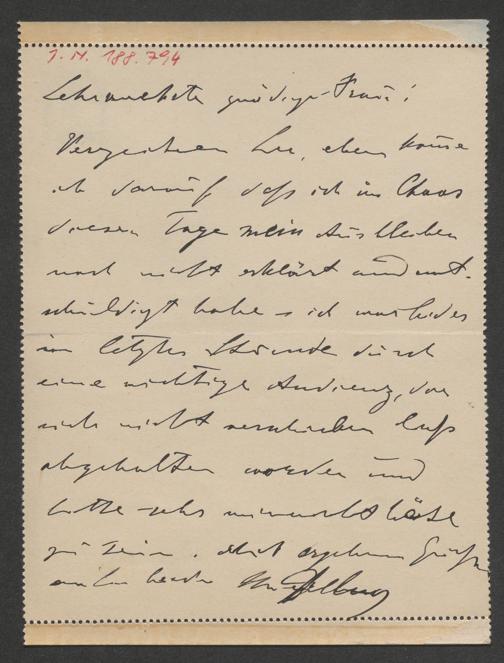 I. N. 188.794
Sehrverehrte gnädige Frau!
Verzeihen Sie, eben komme
ich darauf daß ich im Chaos
dieser Tage mein Ausbleiben
noch nicht erklärt und ent-
schuldigt habe – ich war leider
im letzter Stunde durch
eine wichtige Audienz, die
sich nicht verschieben ließ
abgehalten worden und
bitte sehr mir nicht böse
zu sein. Mit ergebenen Grüßen